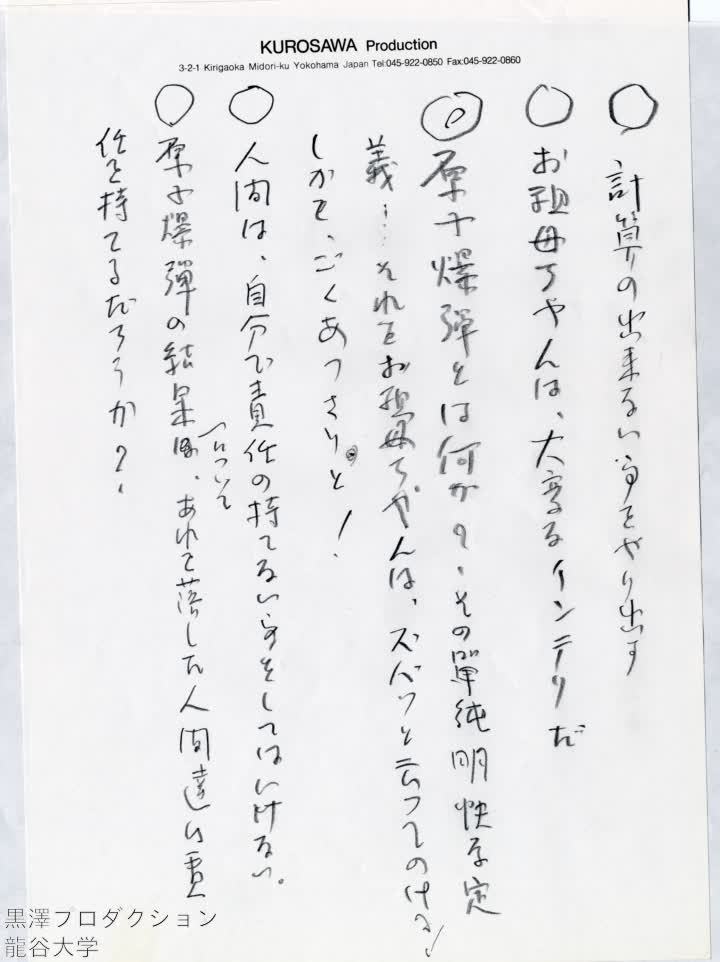 KUROSAWA Production
3-2-1 Kirigaoka Midori-ku Yokohama Japan Tel:045-922-0850 Fax:045-922-0860
○ 計算の出来ない事をやり出す
○ お祖母ちゃんは、大変なインテリだ
◎ 原子爆弾とは何か?、その單純明快な定
義……それをお祖母ちゃんは、ズバッと云ってのける!
しかも、ごくあっさりと!
○ 人間は、自分で責任の持てない事をしてはいけない。
○ 原子爆彈の結果について、あれを落した人間達は責
任を持てるだろうか?、
黒澤プロダクション
龍谷大学